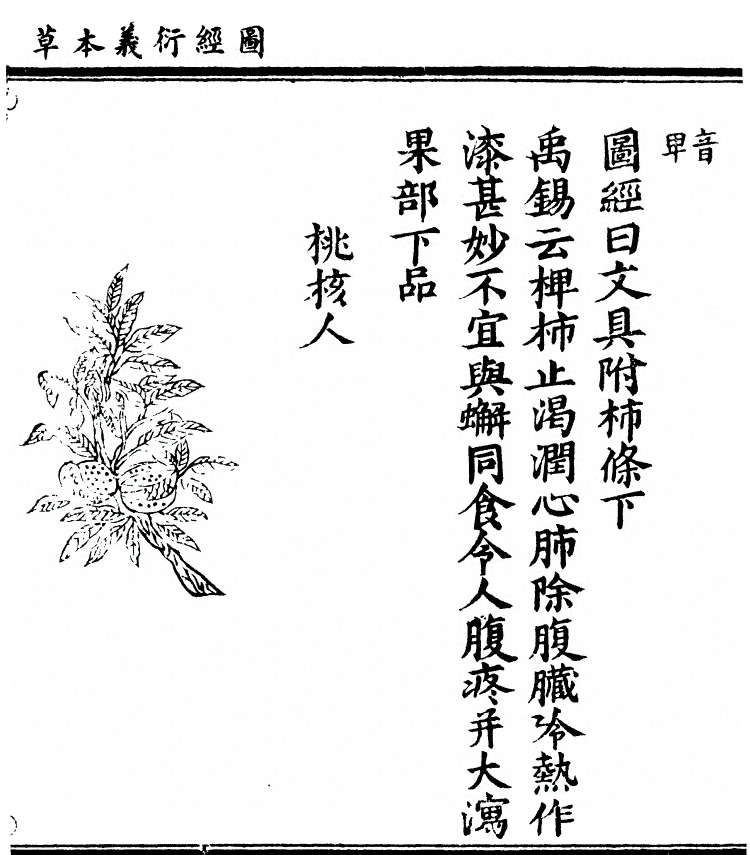 圖經衍義本草
音
卑
圖經曰文具附柿條下
禹錫云椑柿止渴潤心肺除腹臟冷熱作
漆甚妙不宜與蠏同食令人腹疼并大瀉
果部下品
桃核人